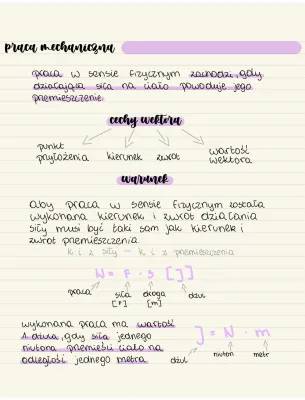 praca mechaniczna
praca w sensie fizycznym zachodzi, gdy
działająca siła na ciało powoduje jego
przemieszczenie
cechy wektora
punkt
przyłożenia kierunek zwrot wartość
wektora
warunek
aby praca w sensie fizycznym została
wykonana kierunek i zwrot działania
siły musi być taki sam jak kierunek i
zwrot przemieszczenia
k i z siły = k i z przemieszczenia
W = F · s [J]
praca siła droga dżul
[F] [m]
wykonana praca ma wartość
1 dżula, gdy siła jednego
niutona przemieści ciało na
odległość jednego metra
J = N · m
dżul niuton metr